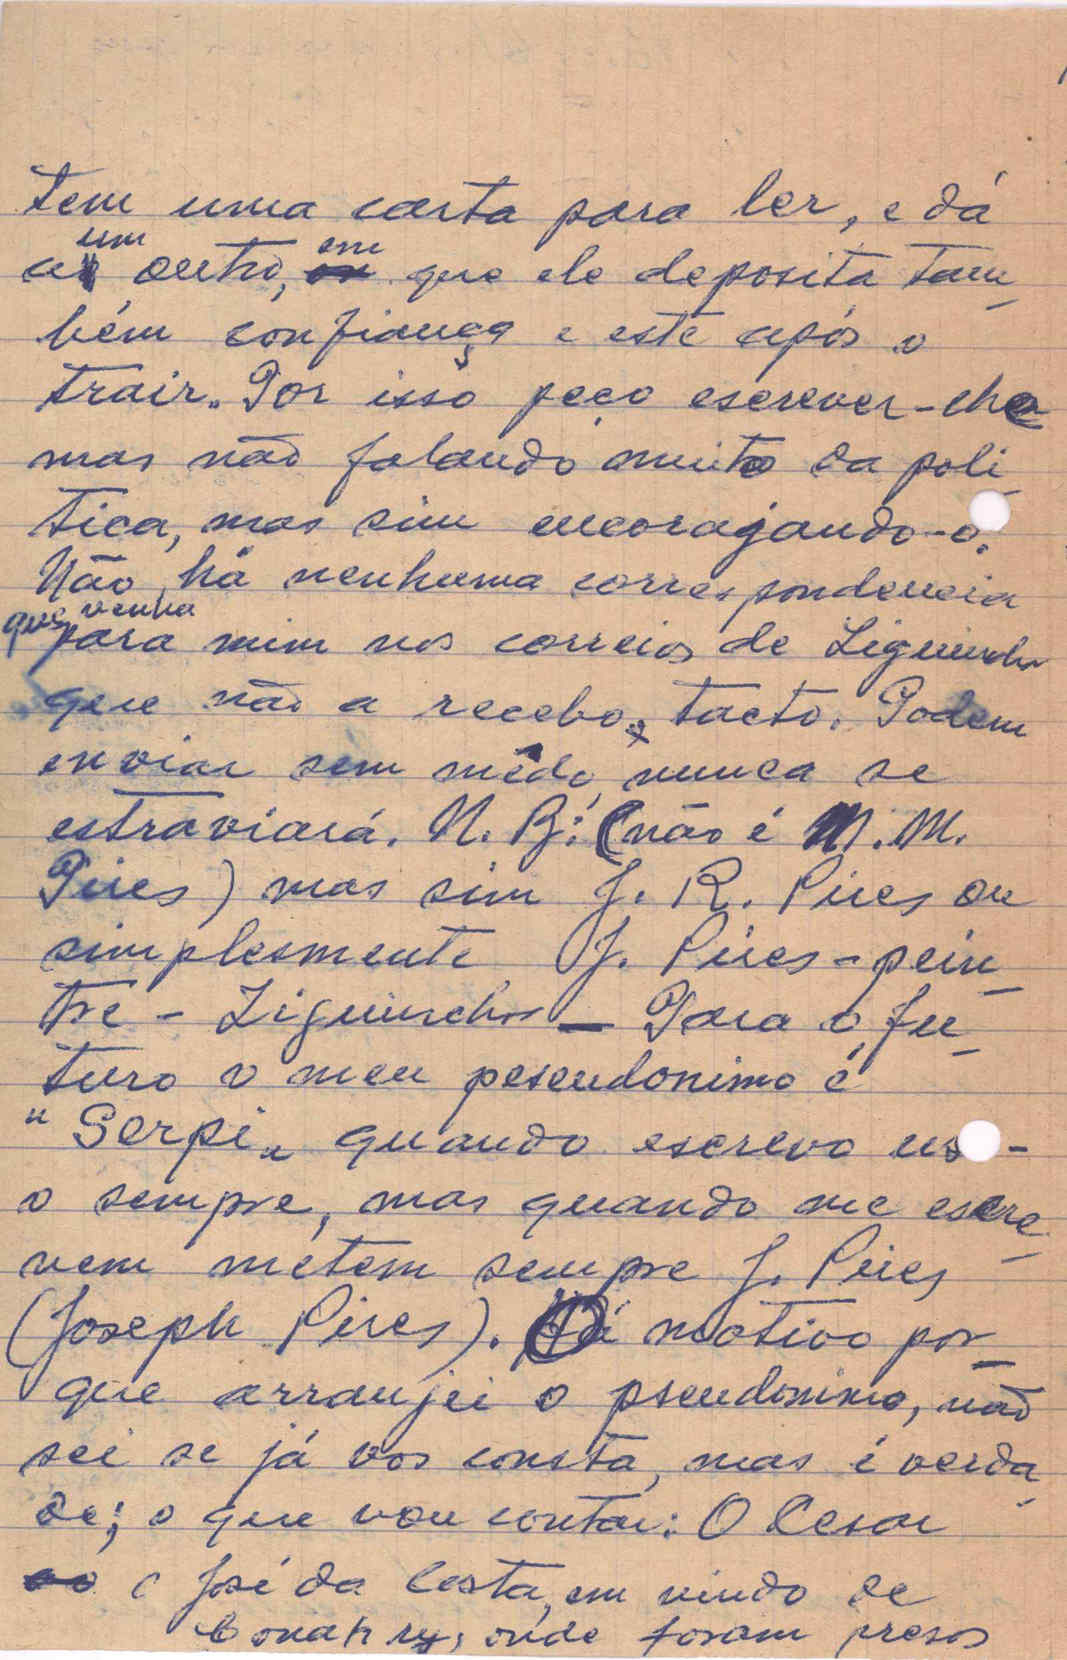 tem uma carta para ler, e dá
a um outro, em que ele deposita tam-
bém confiança e este após o
trair. Por isso peço escrever-lhe
mas não falando muito da poli-
tica, mas sim encorajando-o.
Não há nenhuma correspondencia
que venha
para mim nos correios de Ziguinchor
que não a recebo, tacto. Podem
enviar sem mêdo, nunca se
estraviará. N. B: (não é M. M.
Pires) mas sim J. R. Pires ou
simplesmente J. Pires - pein-
tre - Ziguinchor — Para o fu-
turo o meu peseudonimo é
"Serpi" quando escrevo uso-
o sempre, mas quando me escre-
vem metem sempre J. Pires
(Joseph Pires). O motivo por-
que arranjei o pseudonimo, não
sei se já vos consta, mas é verda-
de; o que vou contar: O Cesar
e José da Costa, em vindo de
onde foram presos